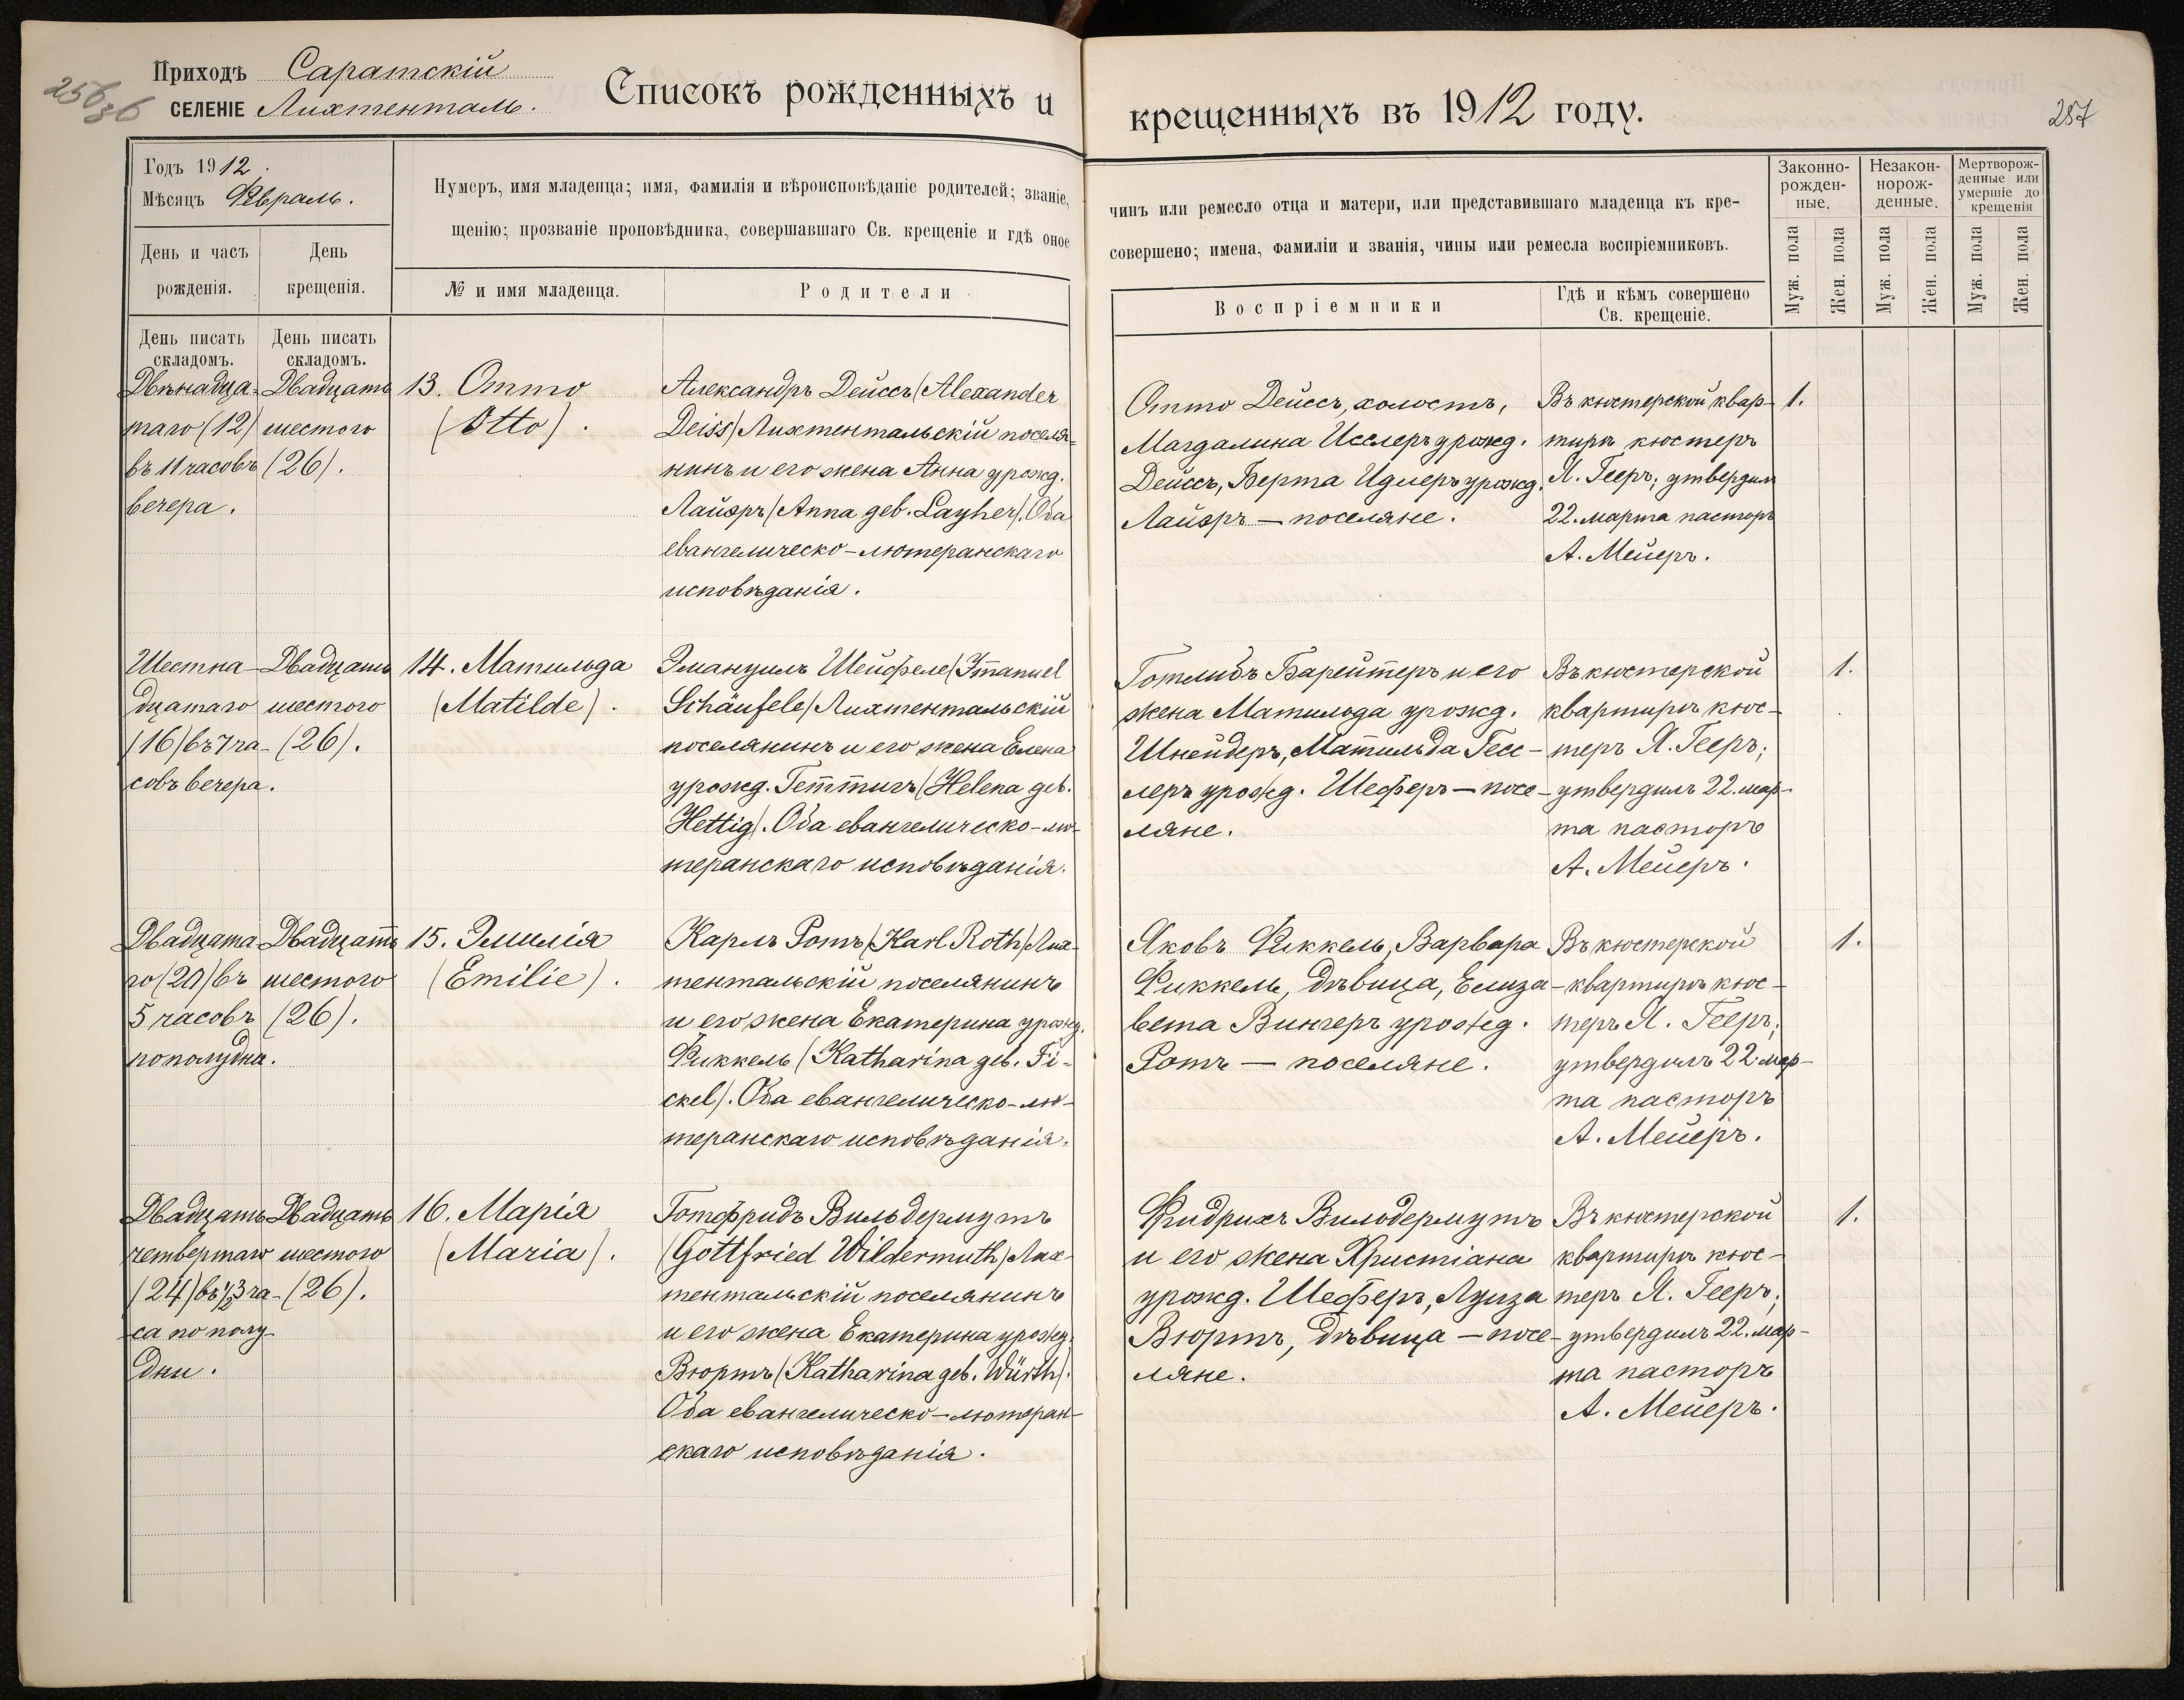 Приходъ Саратскій
СЕЛЕНІЕ Лихтенталь.
Списокъ рожденныхъ и
крещенныхъ въ 1912 году.
257
Годъ 1912.
Мѣсяцъ Февраль.
День и часъ рожденія.
День крещенія.
Нумеръ, имя младенца; имя, фамилія и вѣроисповѣданіе родителей; званіе,
щенію; прозваніе проповѣдника, совершавшаго Св. крещеніе и гдѣ оное
№ и имя младенца.
Родители
чинъ или ремесло отца и матери, или представившаго младенца къ кре-
совершено; имена, фамиліи и званія, чины или ремесла воспріемниковъ.
Воспріемники
Гдѣ и кѣмъ совершено
Св. крещеніе.
Законно-
рожден-
ные.
Незакон-
норож-
денные.
Мертворож-
денные или
умершіе до
крещенія
Муж. пола
Жен. пола
Муж. пола
Жен. пола
Муж. пола
Жен. пола
День писать
складомъ.
День писать
складомъ.
Двѣнадца-
таго (12)
въ 11 часовъ
вечера.
Двадцать
шестого
(26).
13. Отто
(Otto).
Александръ Дейссъ (Alexander
Deiss) Лихтентальскій поселя-
нинъ и его жена Анна урожд.
Лайэръ (Anna geb. Layher). Оба
евангелическо-лютеранскаго
исповѣданія.
Отто Дейссъ, холостъ,
Магдалина Исслеръ урожд.
Дейссъ, Берта Идлеръ урожд.
Лайэръ — поселяне.
Въ кюстерской квар-
тирѣ кюстеръ
Я. Гееръ; утвердилъ
22. марта пасторъ
А. Мейеръ.
1.
Шестна-
дцатаго
(16) въ 7 ча-
совъ вечера.
Двадцать
шестого
(26).
14. Матильда
(Matilde).
Эмануилъ Шейфеле (Emanuel
Schäufele) Лихтентальскій
поселянинъ и его жена Елена
урожд. Геттигъ (Helena geb.
Hettig). Оба евангелическо-лю-
теранскаго исповѣданія.
Готлибъ Барейтеръ и его
жена Матильда урожд.
Шнейдеръ, Матильда Гесс-
леръ урожд. Шеферъ — посе-
ляне.
Въ кюстерской
квартирѣ кюс-
теръ Я. Гееръ;
утвердилъ 22. мар-
та пасторъ
А. Мейеръ.
1.
Двадцата-
го (20) въ
5 часовъ
пополудни.
Двадцать
шестого
(26).
15. Эмилія
(Emilie).
Карлъ Ротъ (Karl Roth) Лих-
тентальскій поселянинъ
и его жена Екатерина урожд.
Фиккель (Katharina geb. Fi-
ckel). Оба евангелическо-лю-
теранскаго исповѣданія.
Яковъ Фиккель, Варвара
Фиккель, дѣвица, Елиза-
вета Вингеръ урожд.
Ротъ — поселяне.
Въ кюстерской
квартирѣ кюс-
теръ Я. Гееръ;
утвердилъ 22. мар-
та пасторъ
А. Мейеръ.
1.
Двадцать
четвертаго
(24) въ ½3 ча-
са по полу-
дни.
Двадцать
шестого
(26).
16. Марія
(Maria).
Готфридъ Вильдермутъ
(Gottfried Wildermuth) Лих-
тентальскій поселянинъ
и его жена Екатерина урожд.
Вюртъ (Katharina geb. Würth).
Оба евангелическо-лютеран-
скаго исповѣданія.
Фридрихъ Вильдермутъ
и его жена Христіана
урожд. Шеферъ, Луиза
Вюртъ, дѣвица — посе-
ляне.
Въ кюстерской
квартирѣ кюс-
теръ Я. Гееръ;
утвердилъ 22. мар-
та пасторъ
А. Мейеръ.
1.